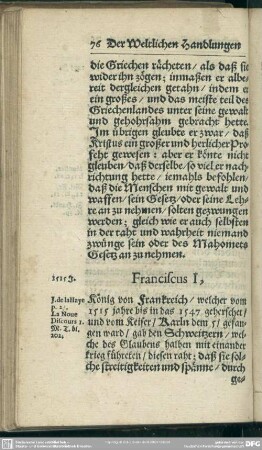 76 Der Weltlichen Handlungen
die Griechen rücheten / als daß sie
wider ihn zögen; inmaßen er albe-
reit dergleichen getahn / indem er
ein großes / und das meiste teil des
Griechenlandes unter seine gewalt
und gehohrsahm gebracht hette.
Im übrigen gleubte er zwar / daß
Kristus ein großer und herlicher Pro-
feht gewesen: aber er könte nicht
gleuben / daß derselbe / so viel er nach-
richtung hette / iemahls befohlen /
daß die Menschen mit gewalt und
waffen / sein Gesetz / oder seine Leh-
re an zu nehmen / solten gezwungen
werden; gleich wie er auch selbsten
in der taht und wahrheit niemand
zwünge sein oder des Mahomets
Gesetz an zu nehmen.
1515 J.
Franciscus I,
J. de la Haye
p. 2.
La Noue
Discours 1.
M. T. bl.
202.
König von Frankreich / welcher vom
1515 jahre bis in das 1547 geherschet /
und vom Keiser / Karln dem 5 / gefan-
gen ward / gab den Schweitzern / wel-
che des Glaubens halben mit einander
krieg führeten / diesen raht; daß sie sol-
che streitigkeiten und spänne / durch
ge-